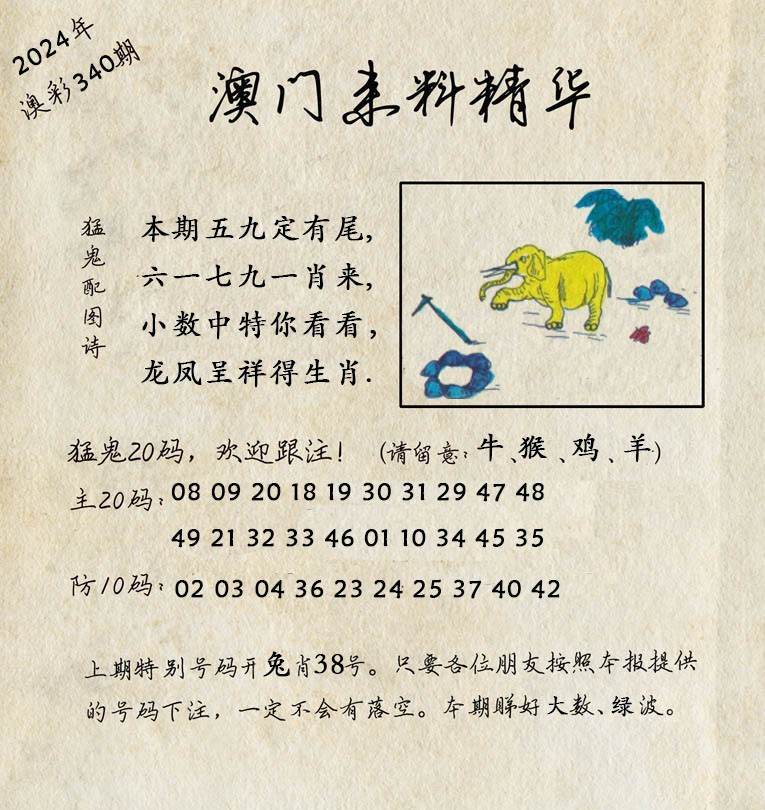 2024年
澳彩340期
澳门来料精华
猛鬼配图诗
本期五九定有尾,
六一七九一肖来,
小数中特你看看,
龙凤呈祥得生肖.
猛鬼20码，欢迎跟注！（请留意：牛、猴、鸡、羊）
主20码：08 09 20 18 19 30 31 29 47 48
49 21 32 33 46 01 10 34 45 35
防10码：02 03 04 36 23 24 25 37 40 42
上期特别号码开兔肖38号。只要各位朋友按照本报提供
的号码下注，一定不会有落空。本期睇好大数、绿波。